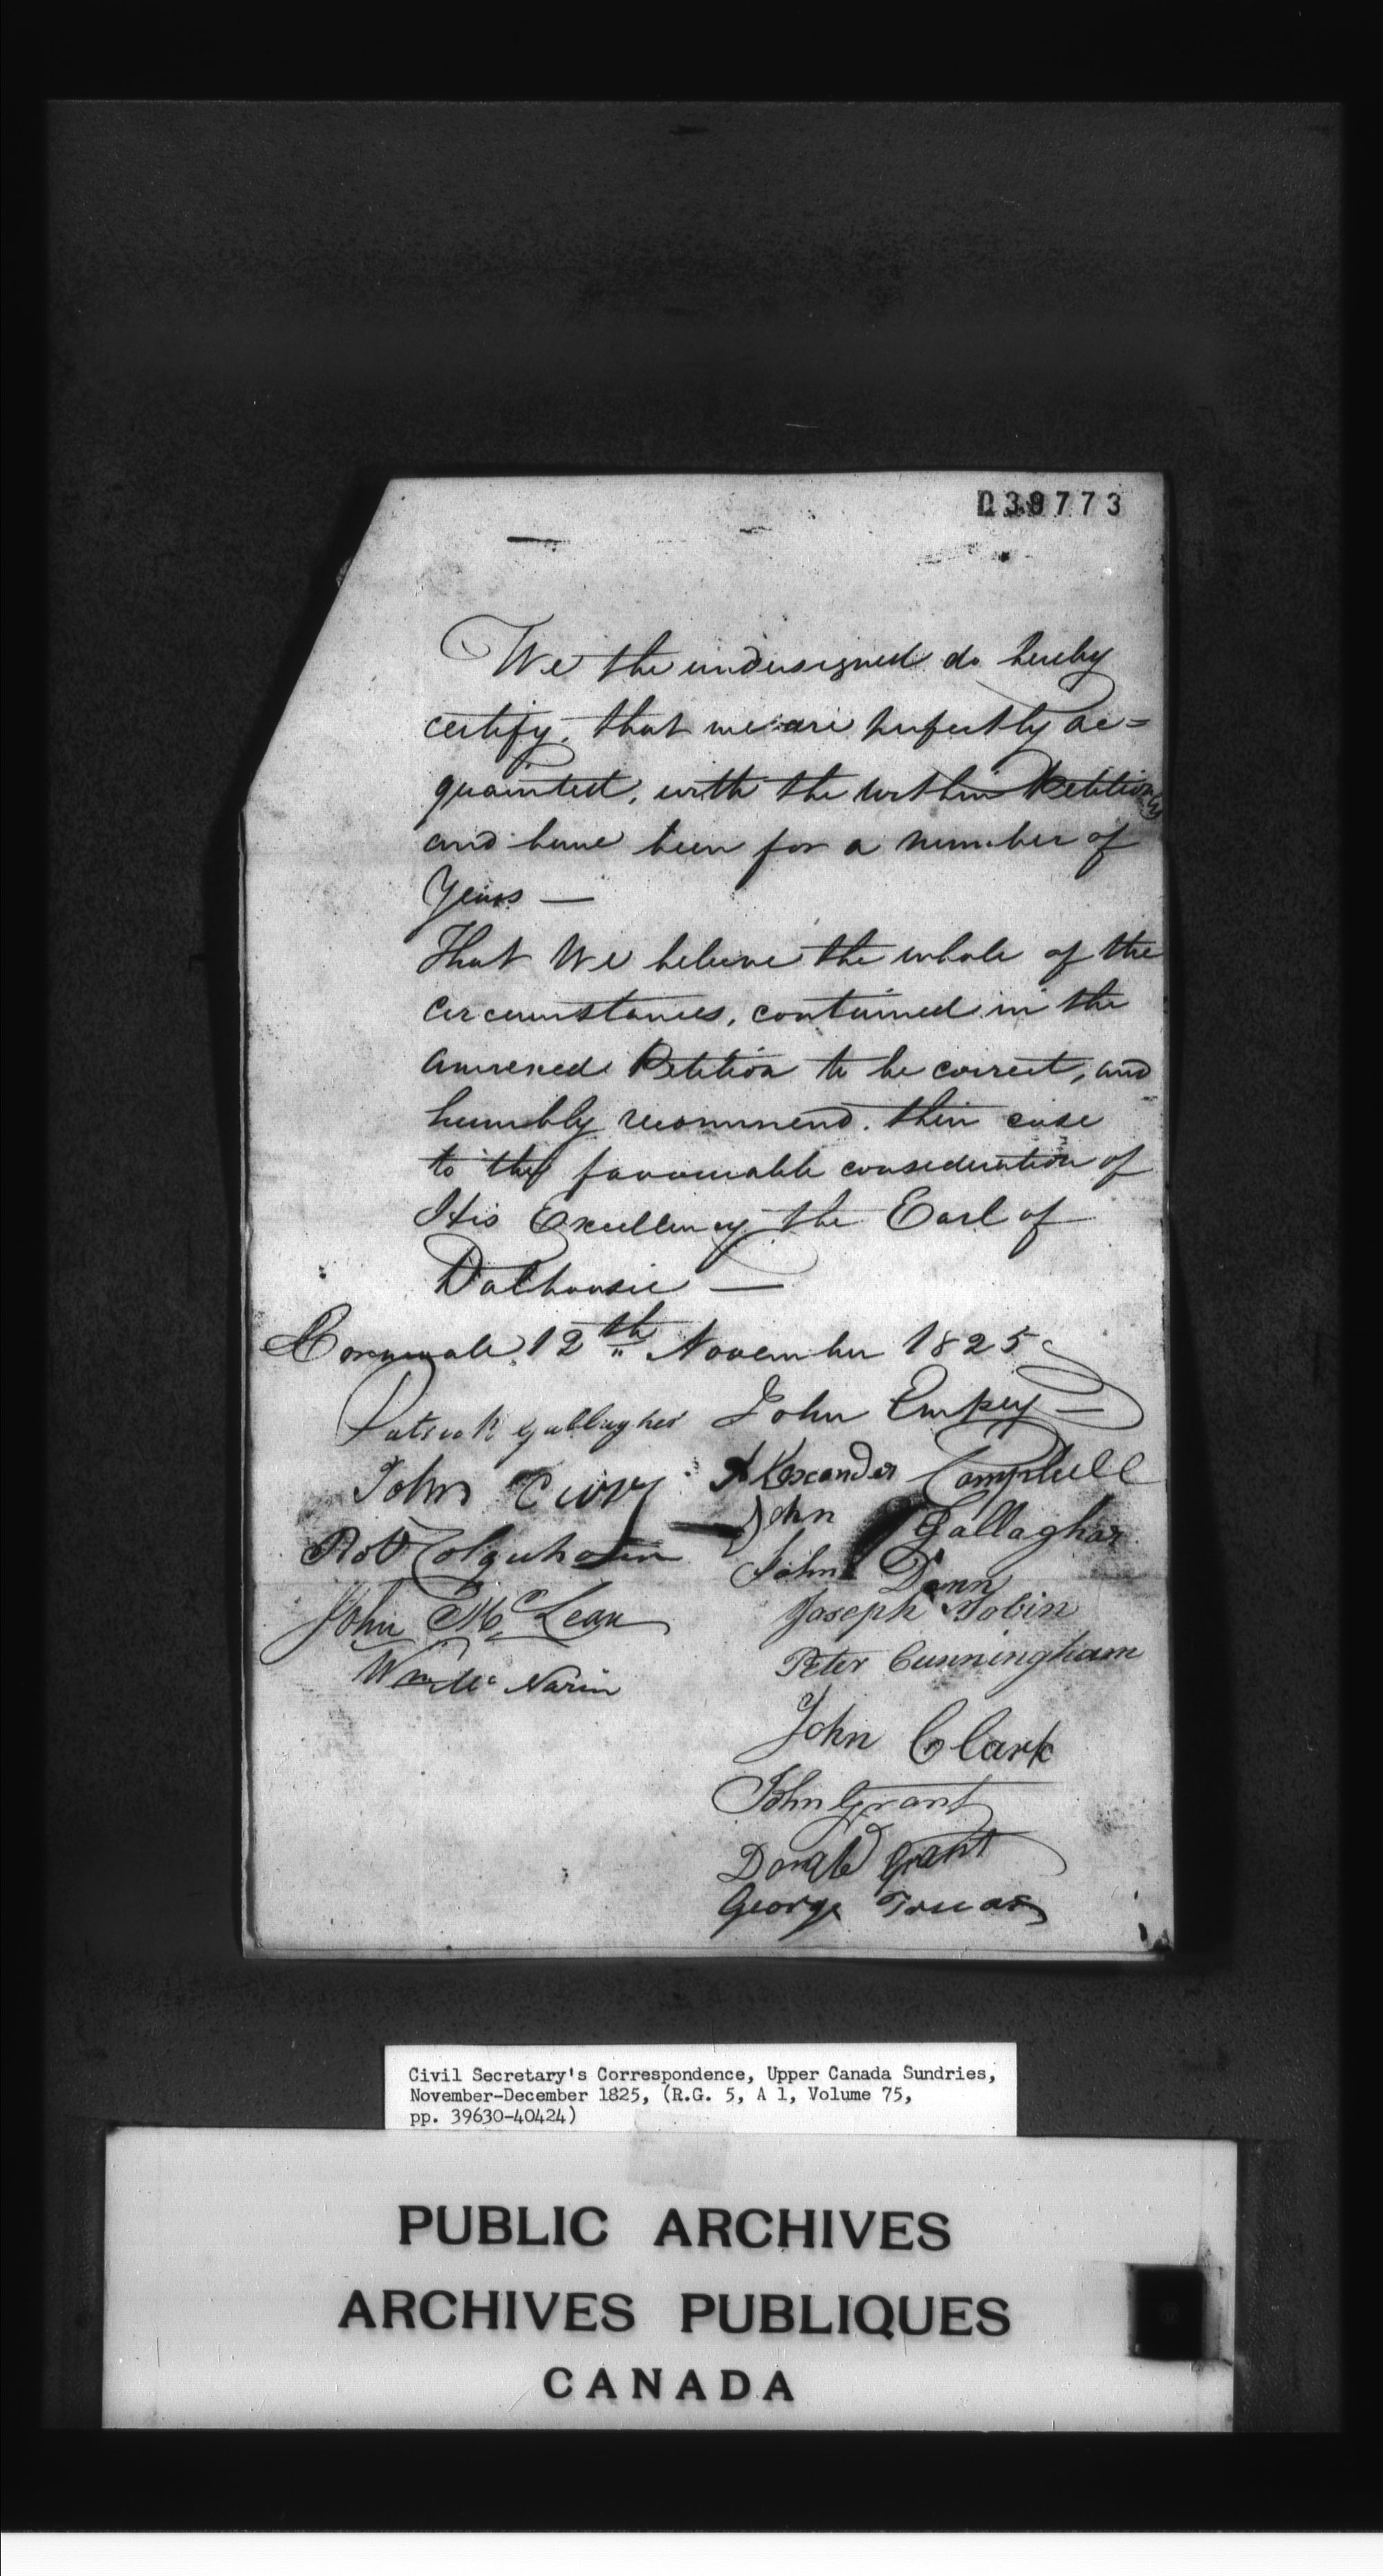 039773
We the undersigned do hereby
certify, that we are perfectly ac=
quainted, with the within Petitioners
and have been for a number of
Years —
That We believe the whole of the
circumstances, contained in the
annexed Petition to be correct, and
humbly recommend. their case
to the favourable consideration of
His Excellency the Earl of
Dalhousie —
Cornwall 12th November 1825
Patrick Gallagher
John Empey
John
Alexander Campbell
Robt Colquhoun
John Gallaghar
John McLean
John Dunn
Wm Mc
Joseph Tobin
Peter Cunningham
John Clark
John Grant
Donald Grant
George
Civil Secretary's Correspondence, Upper Canada Sundries,
November-December 1825, (R.G. 5, A 1, Volume 75,
pp. 39630-40424)
PUBLIC ARCHIVES
ARCHIVES PUBLIQUES
CANADA